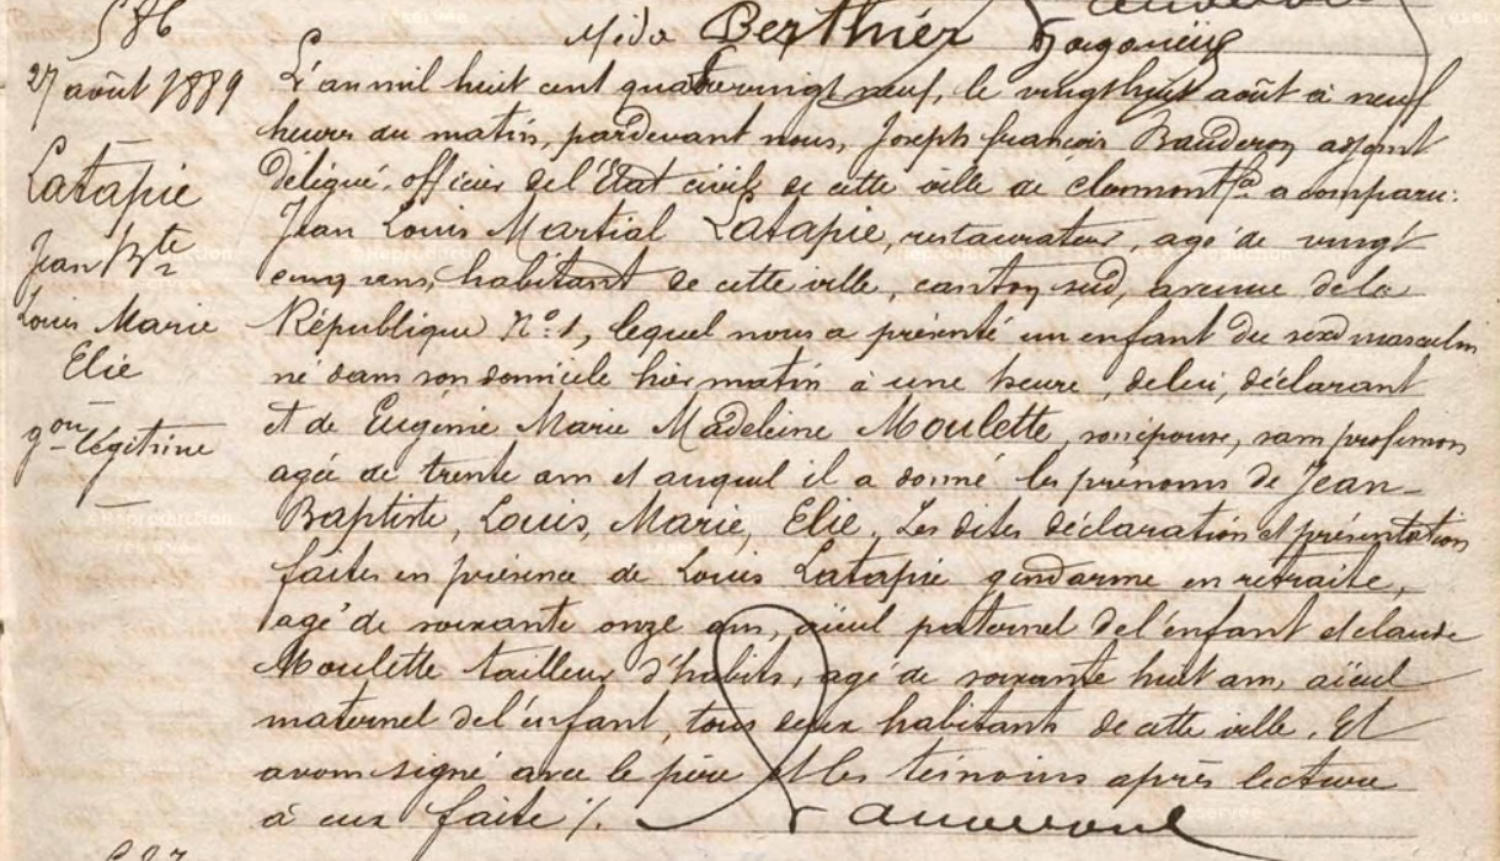 586
Méda Berthier
27 août 1889
Latapie
Jean Bte
Louis Marie
Elie
gon légitime
L'an mil huit cent quatrevingt neuf, le vingt huit août à neuf
heures du matin, pardevant nous, Joseph françois Bauderon adjoint
délégué, officier de l'Etat civil de cette ville de clermont fd a comparu:
Jean Louis Martial Latapie, restaurateur, agé de vingt
cinq ans, habitant de cette ville, canton sud, avenue de la
République N° 1, lequel nous a présenté un enfant du sexe masculin
né dans son domicile hier matin à une heure, de lui, déclarant
et de Eugénie Marie Madeleine Moulette, son épouse, sans profession
agée de trente ans et auquel il a donné les prénoms de Jean-
Baptiste, Louis, Marie, Elie. Les dites déclaration et présentation
faites en présence de Louis Latapie gendarme en retraite,
agé de soixante onze ans, aïeul paternel de l'enfant et claude
Moulette tailleur d'habits, agé de soixante huit ans, aïeul
maternel de l'enfant, tous deux habitants de cette ville. Et
avons signé avec le père et les témoins après lecture
à eux faite /.
587